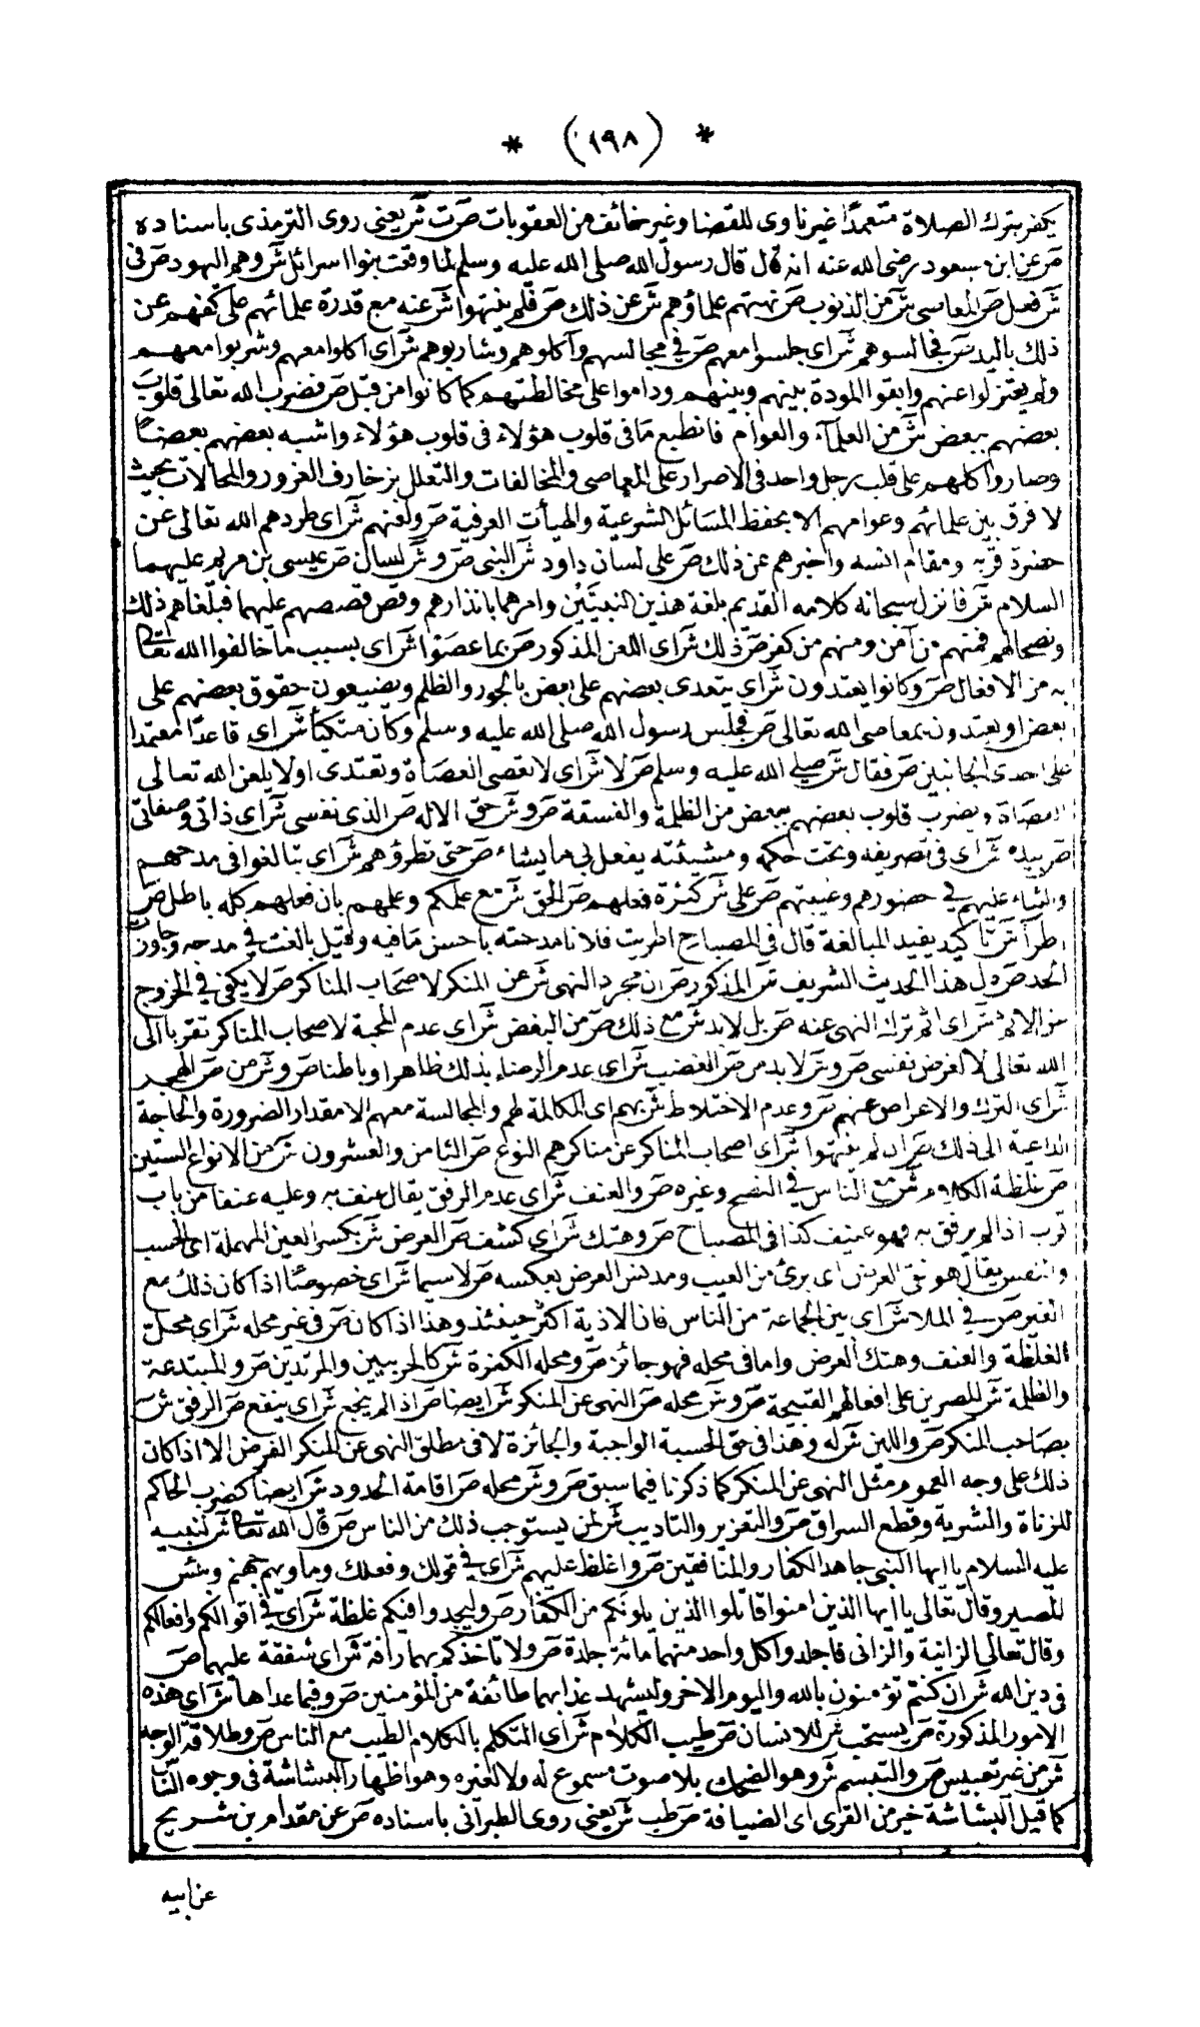 * (١٩٨) *
يكفر بترك الصلاة متعمدًا غير ناوى للقضا وغير خائف من العقوبات صرت شر يعنى روى الترمذى باسناده
صر عن ابن مسعود رضى الله عنه انه قال قال رسول الله صلى الله عليه وسلم لما وقعت بنوا اسرائل شر وهم اليهود صر فى
شر فعل صر المعاسى شر من الذنوب صر نهتهم علماؤهم شر عن ذلك صر فلم ينتهوا شر عنه مع قدرة علمائهم على كفهم عن
ذلك باليد صر فجالسوهم شر اى جلسوا معهم صر فى مجالسهم وآكلوهم وشاربوهم شر اى اكلوا معهم وشربوا معهم
ولم يعتزلوا عنهم وابقوا المودة بينهم وبينهم وداموا على مخالطتهم كما كانوا من قبل صر فضرب الله تعالى قلوب
بعضهم ببعض شر من العلمآء والعوام فانطبع ما فى قلوب هؤلاء فى قلوب هؤلاء واشبه بعضهم بعضًا
وصاروا كلهم على قلب رجل واحد فى الاصرار على المعاصى والمخالفات والتعلل بزخارف الغرور والمحالات بحيث
لا فرق بين علمائهم وعوامهم الا بحفظ المسائل الشرعية والهيأت العرفية صر ولعنهم شر اى طردهم الله تعالى عن
حضرة قربه ومقام انسه واخبرهم عن ذلك صر على لسان داود شر النبى صر و شر لسان صر عيسى بن مريم عليهما
السلام شر فانزل سبحانه كلامه القديم بلغة هذين النبيّين وامرهما بانذارهم وقص قصصهم عليهما فبلغاهم ذلك
ونصحالهم فمنهم من آمن ومنهم من كفر صر ذلك شر اى اللعن المذكور صر بما عصوا شر اى بسبب ما خالفوا الله تعالى
به من الافعال صر وكانوا يعتدون شر اى يتعدى بعضهم على بعض بالجور والظلم ويضيعون حقوق بعضهم على
بعض او يعتدون بمعاصى الله تعالى صر فجلس رسول الله صلى الله عليه وسلم وكان متكيأ شر اى قاعدًا معتمدا
على احدى الجانبين صر فقال شر صلى الله عليه وسلم صر لا شر اى لا نقصى العصاة وتعتدى اولا يلعن الله تعالى
العصاة ويضرب قلوب بعضهم ببعض من الظلمة والفسقة صر و شر حق الاله صر الذى نفسى شر اى ذاتى وصفاتى
صر بيده شر اى فى تصريفه وتحت حكمه ومشيئته يفعل بى ما يشاء صر حتى تطرؤهم شر اى تبالغوا فى مدحهم
والثناء عليهم فى حضورهم وغيبتهم صر على شر كثرة فعلهم صر الحق شر مع علمكم وعلمهم بان فعلهم كله باطل صر
اطرآ شر تاكيد يفيد المبالغة قال فى المصباح اطريت فلانا مدحته باحسن ما فيه وقيل بالغت فى مدحه وجاوزت
الحد صر دل هذا الحديث الشريف شر المذكور صر ان مجرد النهى شر عن المنكر لاصحاب المناكر صر لا يكفى فى الخروج
من الاثم شر اى اثم ترك النهى عنه صر بل لابد شر مع ذلك صر من البغض شر اى عدم المحبة لاصحاب المناكر تقربا الى
الله تعالى لا لغرض نفسى صر و شر لابد من صر الغضب شر اى عدم الرضاء بذلك ظاهرا وباطنا صر و شر من صر الهجر
شر اى الترك والاعراض عنهم صر وعدم الاختلاط شر بهم اى المكالمة لهم والمجالسة معهم الا مقدار الضرورة والحاجة
الداعية الى ذلك صر ان لم ينتهوا شر اى اصحاب المناكر عن مناكرهم النوع صر الثامن والعشرون شر من الانواع الستين
صر غلظة الكلام شر مع الناس فى النصح وغيره صر والعنف شر اى عدم الرفق يقال عنف به وعليه عنفا من باب
قرب اذا لم يرفق به فهو عنيف كذا فى المصباح صر وهتك شر اى كشف صر العرض شر بكسر العين المهملة اى الحسب
والنفس يقال هو نقى العرض اى برئ من العيب ومدنس العرض بعكسه صر لاسيما شر اى خصوصًا اذا كان ذلك مع
الغير صر فى الملا شر اى بين الجماعة من الناس فان الاذية اكثر حينئذ وهذا اذا كان صر فى غير محله شر اى محل
الغلظة والعنف وهتك العرض واما فى محله فهو جائز صر ومحله الكفرة شر كالحربيين والمرتدين صر والمبتدعة
والظلمة شر للمصرين على افعالهم القبيحة صر و شر محله صر النهى عن المنكر شر ايضا صر اذا لم ينجع شر اى ينفع صر الرفق شر
بصاحب المنكر صر واللين شر له وهذا فى حق الحسبة الواجبة والجائزة لا فى مطلق النهى عن المنكر الفرض الا اذا كان
ذلك على وجه العموم مثل النهى عن المنكر كما ذكرنا فيما سبق صر و شر محله صر اقامة الحدود شر ايضا كضرب الحاكم
للزناة والشربة وقطع السراق صر والتعزير والتاديب شر لمن يستوجب ذلك من الناس صر قال الله تعالى شر لنبيه
عليه السلام يا ايها النبى جاهد الكفار والمنافقين صر واغلظ عليهم شر اى فى قولك وفعلك وماويهم جهنم وبئس
المصير وقال تعالى يا ايها الذين امنوا قاتلوا الذين يلونكم من الكفار صر وليجدوا فيكم غلظة شر اى فى اقوالكم وافعالكم
وقال تعالى الزانية والزانى فاجلدوا كل واحد منهما مائة جلدة صر ولا تاخذكم بهما رافة شر اى شفقة عليهما صر
فى دين الله شر ان كنتم تؤمنون بالله واليوم الاخر وليشهد عذابهما طائفة من المؤمنين صر وفيما عداها شر اى هذه
الامور المذكورة صر يستحب شر للانسان صر طيب الكلام شر اى التكلم بالكلام الطيب مع الناس صر وطلاقة الوجه
شر من غير تعبيس صر والتبسم شر وهو الضحك بلا صوت مسموع له ولا لغيره وهو اظهار البشاشة فى وجوه الناس
كما قيل البشاشة خير من القرى اى الضيافة صر طب شر يعنى روى الطبرانى باسناده صر عن مقدام بن شريح
عن ابيه